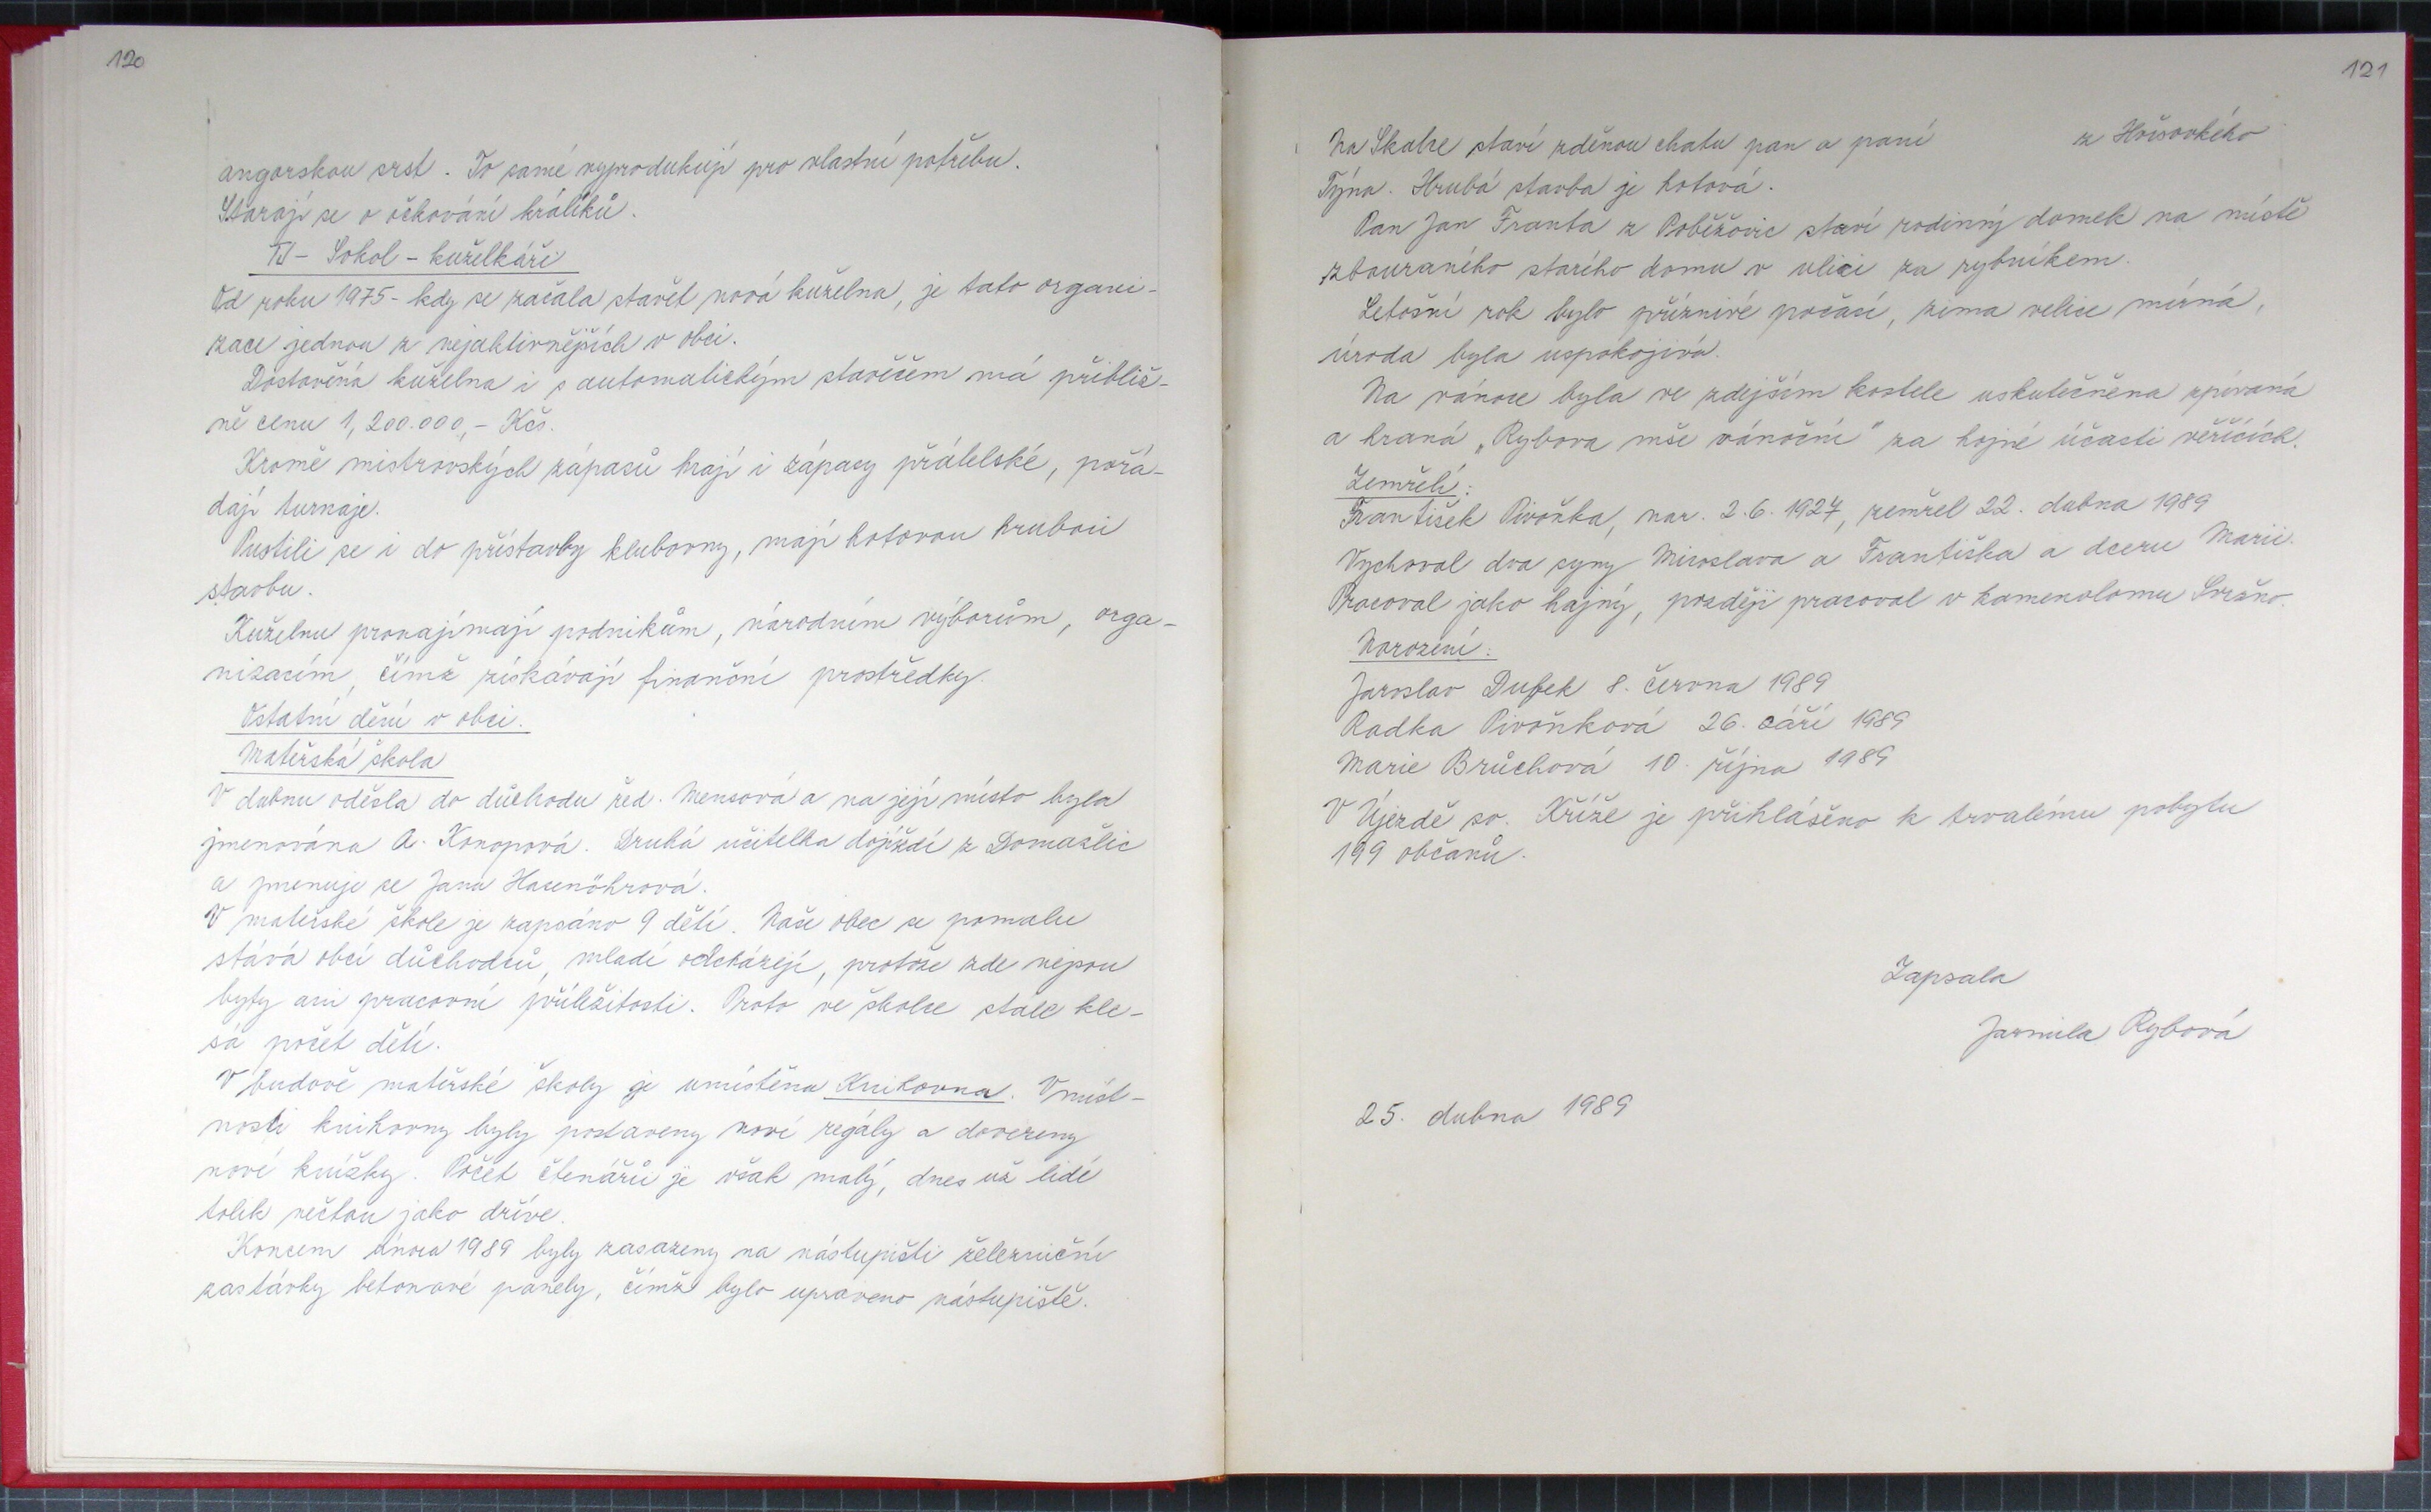 120
angorskou srst. To samé vyprodukují pro vlastní potřebu.
Starají se o očkování králíků.
TJ - Sokol - kuželkáři
Od roku 1975 - kdy se začala stavět nová kuželna, je tato organi-
zace jednou z nejaktivnějších v obci.
Dostavěná kuželna i s automatickým stavěčem má přibliž-
ně cenu 1,200.000,- Kčs.
Kromě mistrovských zápasů hrají i zápasy přátelské, pořá-
dají turnaje.
Pustili se i do přístavby klubovny, mají hotovou hrubou
stavbu.
Kuželnu pronajímají podnikům, národním výborům, orga-
nizacím, čímž získávají finanční prostředky.
Ostatní dění v obci.
Mateřská škola
V dubnu oděšla do důchodu řed. Mensová a na její místo byla
jmenována A. Konopová. Druhá učitelka dojíždí z Domažlic
a jmenuje se Jana Hasenöhrová.
V mateřské škole je zapsáno 9 dětí. Naše obec se pomalu
stává obcí důchodců, mladí odcházejí, protože zde nejsou
byty ani pracovní příležitosti. Proto ve školce stále kle-
sá počet dětí.
V budově mateřské školy je umístěna Knihovna. V míst-
nosti knihovny byly postaveny nové regály a dovezeny
nové knížky. Počet čtenářů je však malý, dnes už lidé
tolik nečtou jako dříve.
Koncem února 1989 byly zasazeny na nástupišti železniční
zastávky betonavé panely, čímž bylo upraveno nástupiště.
121
Na Skalce staví zděnou chatu pan a paní z Horšovkého
Týna. Hrubá stavba je hotová.
Pan Jan Franta z Poběžovic staví rodinný domek na místě
zbouraného starého domu v ulici za rybníkem.
Letošní rok bylo příznivé počasí, zima velice mírná,
úroda byla uspokojivá.
Na vánoce byla ve zdejším kostele uskutečněna zpívaná
a hraná „Rybova mše vánoční" za hojné účasti věřících.
Zemřelí:
František Pivoňka, nar. 2.6. 1927, zemřel 22. dubna 1989
Vychoval dva syny Miroslava a Františka a dceru Marii.
Pracoval jako hajný, později pracoval v kamenolomu Svržno.
Narození:
Jaroslav Dufek 8. června 1989
Radka Pivoňková 26. září 1989
Marie Brůchová 10. října 1989
V Újezdě sv. Kříže je přihlášeno k trvalému pobytu
199 občanů.
Zapsala
Jarmila Rybová
25. dubna 1989